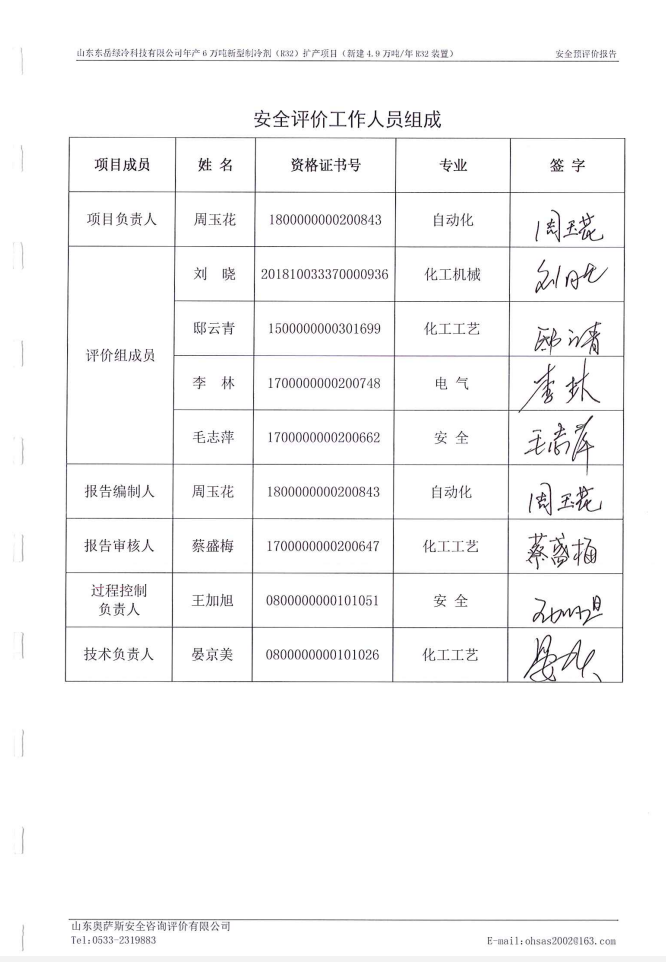 山东东岳绿冷科技有限公司年产6万吨新型制冷剂（R32）扩产项目（新建4.9万吨/年R32装置） 安全预评价报告
安全评价工作人员组成
项目成员 姓 名 资格证书号 专业 签 字
项目负责人 周玉花 1800000000200843 自动化 周玉花
评价组成员 刘 晓 201810033370000936 化工机械 刘晓
邸云青 1500000000301699 化工工艺 邸云青
李 林 1700000000200748 电 气 李林
毛志萍 1700000000200662 安 全 毛志萍
报告编制人 周玉花 1800000000200843 自动化 周玉花
报告审核人 蔡盛梅 1700000000200647 化工工艺 蔡盛梅
过程控制
负责人 王加旭 0800000000101051 安 全 王加旭
技术负责人 晏京美 0800000000101026 化工工艺
山东奥萨斯安全咨询评价有限公司
Tel:0533-2319883 E-mail:ohsas2002@163.com